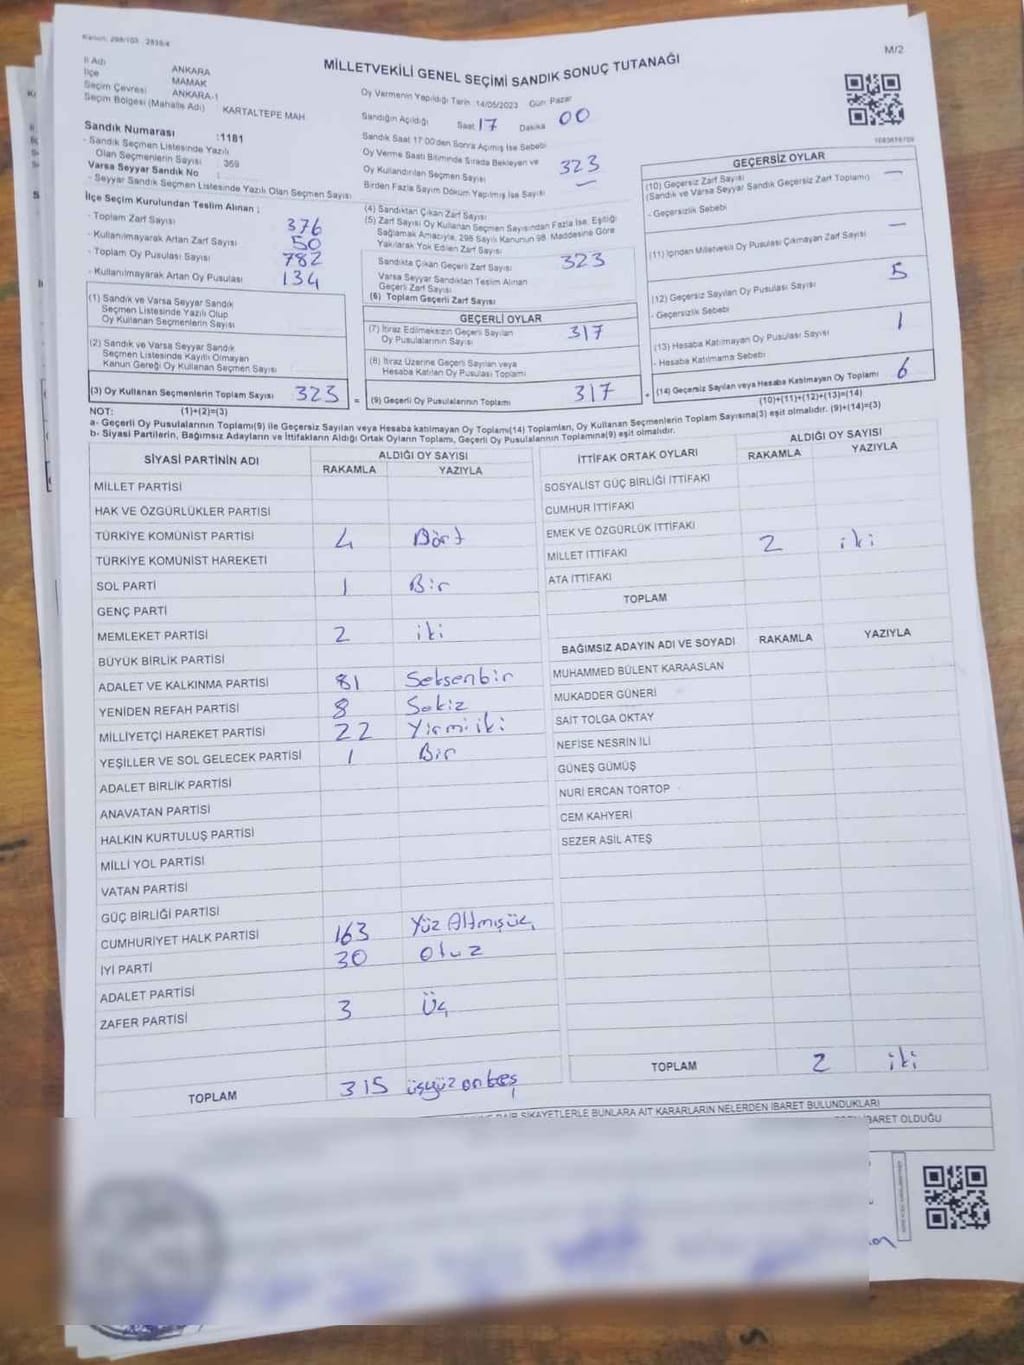 Kanun: 298/103 2839/4
M/2
MİLLETVEKİLİ GENEL SEÇİMİ SANDIK SONUÇ TUTANAĞI
İl Adı ANKARA
İlçe MAMAK
Seçim Çevresi ANKARA-1
Seçim Bölgesi (Mahalle Adı) KARTALTEPE MAH.
Sandık Numarası :1181
- Sandık Seçmen Listesinde Yazılı
Olan Seçmenlerin Sayısı : 369
Varsa Seyyar Sandık No :
- Seyyar Sandık Seçmen Listesinde Yazılı Olan Seçmen Sayısı
İlçe Seçim Kurulundan Teslim Alınan :
- Toplam Zarf Sayısı 376
- Kullanılmayarak Artan Zarf Sayısı 50
- Toplam Oy Pusulası Sayısı 782
- Kullanılmayarak Artan Oy Pusulası 134
(1) Sandık ve Varsa Seyyar Sandık
Seçmen Listesinde Yazılı Olup
Oy Kullanan Seçmenlerin Sayısı
(2) Sandık ve Varsa Seyyar Sandık
Seçmen Listesinde Kayıtlı Olmayan
Kanun Gereği Oy Kullanan Seçmen Sayısı
(3) Oy Kullanan Seçmenlerin Toplam Sayısı 323 =
Oy Vermenin Yapıldığı Tarih :14/05/2023 Gün Pazar
Sandığın Açıldığı Saat 17 Dakika 00
Sandık Saat 17:00'den Sonra Açılmış İse Sebebi
Oy Verme Saati Bitiminde Sırada Bekleyen ve
Oy Kullandırılan Seçmen Sayısı 323
Birden Fazla Sayım Döküm Yapılmış İse Sayısı —
(4) Sandıktan Çıkan Zarf Sayısı
(5) Zarf Sayısı Oy Kullanan Seçmen Sayısından Fazla İse, Eşitliği
Sağlamak Amacıyla, 298 Sayılı Kanunun 98. Maddesine Göre
Yakılarak Yok Edilen Zarf Sayısı
Sandıkta Çıkan Geçerli Zarf Sayısı 323
Varsa Seyyar Sandıktan Teslim Alınan
Geçerli Zarf Sayısı
(6) Toplam Geçerli Zarf Sayısı
GEÇERLİ OYLAR
(7) İtiraz Edilmeksizin Geçerli Sayılan
Oy Pusulalarının Sayısı 317
(8) İtiraz Üzerine Geçerli Sayılan veya
Hesaba Katılan Oy Pusulası Toplamı
(9) Geçerli Oy Pusulalarının Toplamı 317 +
GEÇERSİZ OYLAR
(10) Geçersiz Zarf Sayısı —
(Sandık ve Varsa Seyyar Sandık Geçersiz Zarf Toplamı)
- Geçersizlik Sebebi
(11) İçinden Milletvekili Oy Pusulası Çıkmayan Zarf Sayısı —
(12) Geçersiz Sayılan Oy Pusulası Sayısı 5
- Geçersizlik Sebebi
(13) Hesaba Katılmayan Oy Pusulası Sayısı 1
- Hesaba Katılmama Sebebi
(14) Geçersiz Sayılan veya Hesaba Katılmayan Oy Toplamı 6
(10)+(11)+(12)+(13)=(14)
NOT: (1)+(2)=(3)
a- Geçerli Oy Pusulalarının Toplamı(9) ile Geçersiz Sayılan veya Hesaba Katılmayan Oy Toplamı(14) Toplamları, Oy Kullanan Seçmenlerin Toplam Sayısına(3) eşit olmalıdır. (9)+(14)=(3)
b- Siyasi Partilerin, Bağımsız Adayların ve İttifakların Aldığı Ortak Oyların Toplamı, Geçerli Oy Pusulalarının Toplamına(9) eşit olmalıdır.
SİYASİ PARTİNİN ADI ALDIĞI OY SAYISI
RAKAMLA YAZIYLA
MİLLET PARTİSİ
HAK VE ÖZGÜRLÜKLER PARTİSİ
TÜRKİYE KOMÜNİST PARTİSİ 4 Dört
TÜRKİYE KOMÜNİST HAREKETİ
SOL PARTİ 1 Bir
GENÇ PARTİ
MEMLEKET PARTİSİ 2 iki
BÜYÜK BİRLİK PARTİSİ
ADALET VE KALKINMA PARTİSİ 81 Seksenbir
YENİDEN REFAH PARTİSİ 8 Sekiz
MİLLİYETÇİ HAREKET PARTİSİ 22 Yirmi iki
YEŞİLLER VE SOL GELECEK PARTİSİ 1 Bir
ADALET BİRLİK PARTİSİ
ANAVATAN PARTİSİ
HALKIN KURTULUŞ PARTİSİ
MİLLİ YOL PARTİSİ
VATAN PARTİSİ
GÜÇ BİRLİĞİ PARTİSİ
CUMHURİYET HALK PARTİSİ 163 Yüz Altmışüç
İYİ PARTİ 30 Otuz
ADALET PARTİSİ
ZAFER PARTİSİ 3 Üç
TOPLAM 315 üçyüz onbeş
İTTİFAK ORTAK OYLARI ALDIĞI OY SAYISI
RAKAMLA YAZIYLA
SOSYALİST GÜÇ BİRLİĞİ İTTİFAKI
CUMHUR İTTİFAKI
EMEK VE ÖZGÜRLÜK İTTİFAKI
MİLLET İTTİFAKI 2 iki
ATA İTTİFAKI
TOPLAM
BAĞIMSIZ ADAYIN ADI VE SOYADI RAKAMLA YAZIYLA
MUHAMMED BÜLENT KARAASLAN
MUKADDER GÜNERİ
SAİT TOLGA OKTAY
NEFİSE NESRİN İLİ
GÜNEŞ GÜMÜŞ
NURİ ERCAN TORTOP
CEM KAHYERİ
SEZER ASİL ATEŞ
TOPLAM 2 iki
ŞİKAYETLERLE BUNLARA AİT KARARLARIN NELERDEN İBARET BULUNDUKLARI
İBARET OLDUĞU